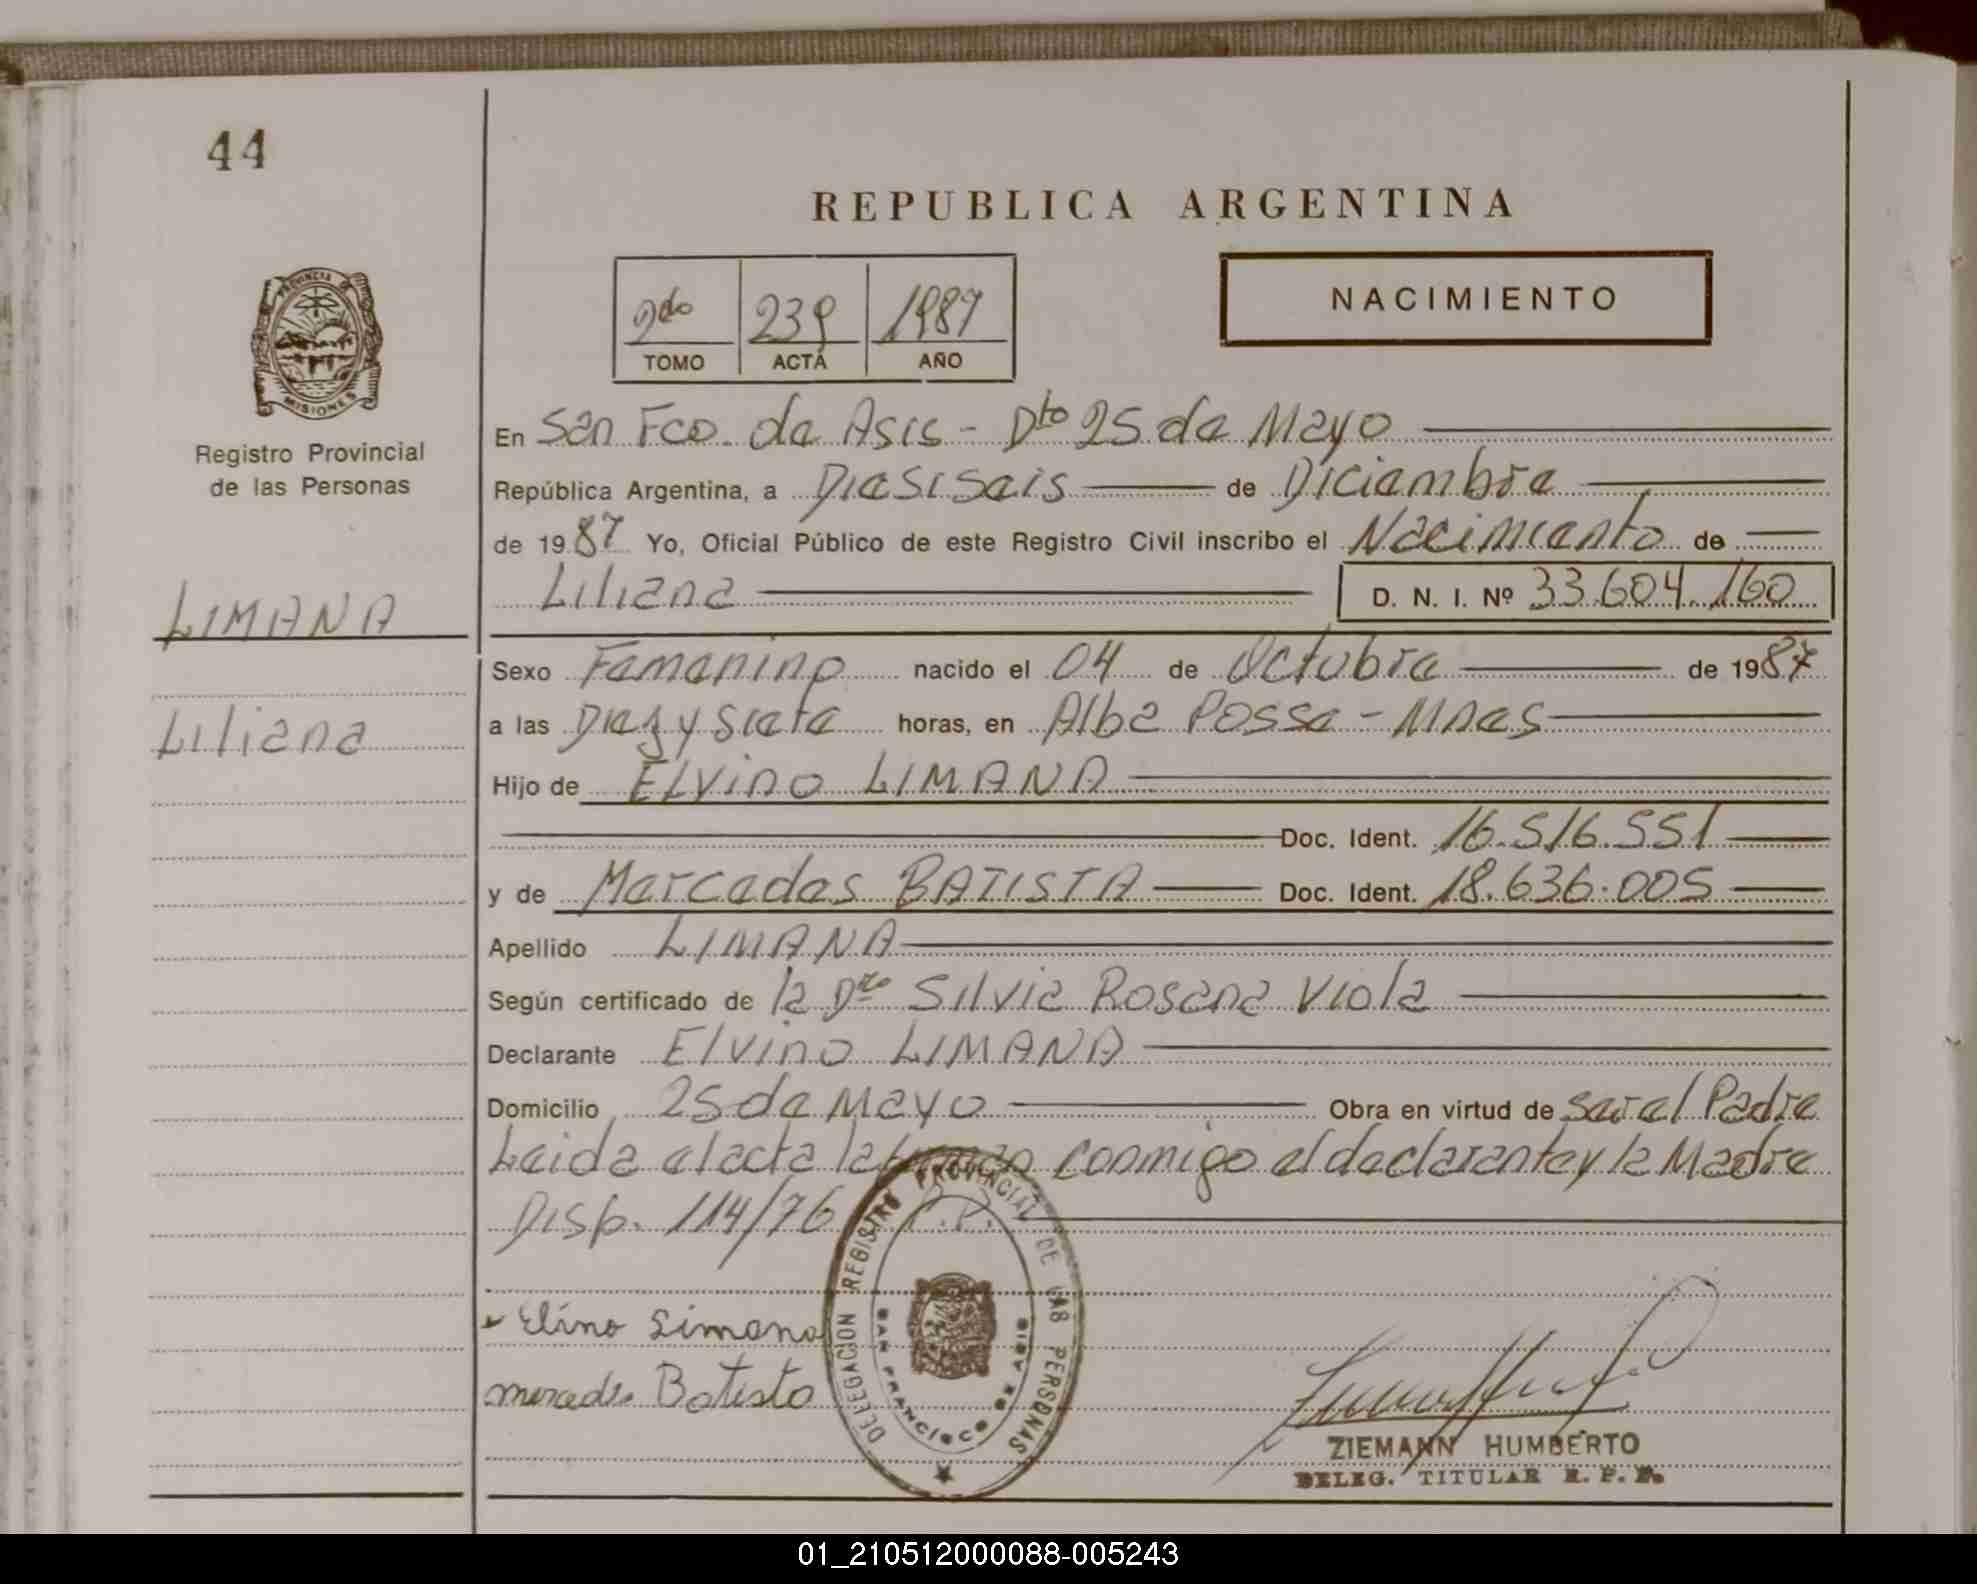 44
REPUBLICA ARGENTINA
2do 239 1987
TOMO ACTA AÑO
NACIMIENTO
PROVINCIA DE
MISIONES
Registro Provincial
de las Personas
LIMANA
Liliana
En San Fco. de Asis - Dto 25 de Mayo
República Argentina, a Diesiseis de Diciembre
de 1987 Yo, Oficial Público de este Registro Civil inscribo el Nacimiento de
Liliana D. N. I. Nº 33.604.160
Sexo Femenino nacido el 04 de Octubre de 1987
a las Diez y Siete horas, en Alba Posse - Mnes
Hijo de Elvino LIMANA
Doc. Ident. 16.516.551
y de Mercedes BATISTA Doc. Ident. 18.636.005
Apellido LIMANA
Según certificado de la Dra Silvia Rosana Viola
Declarante Elvino LIMANA
Domicilio 25 de Mayo Obra en virtud de ser el Padre
Leida el acta la firman conmigo el declarante y la Madre
Disp. 114/76 R.P.
Elino Limana
mercedes Batista
DELEGACION REGISTRO PROVINCIAL DE LAS PERSONAS
SAN FRANCISCO DE ASIS
ZIEMANN HUMBERTO
DELEG. TITULAR R. P. P.
01_210512000088-005243